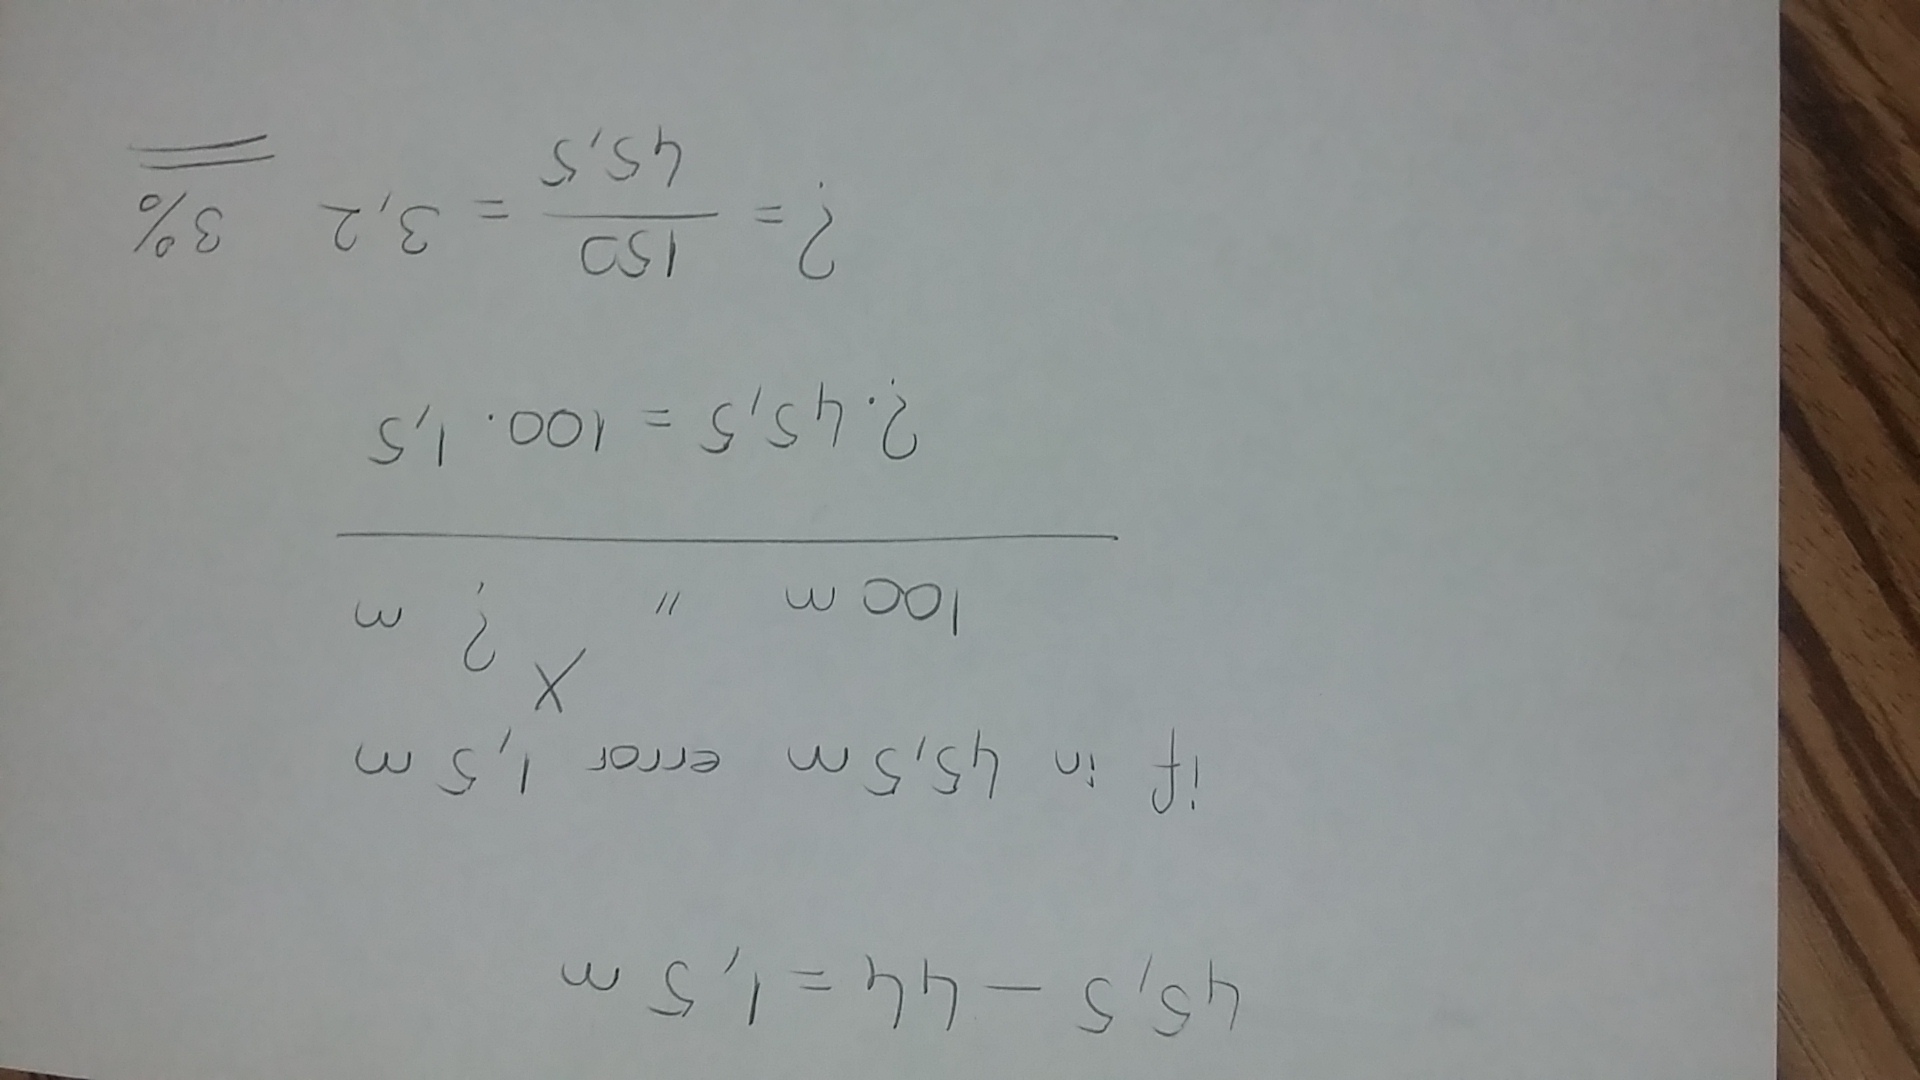 45,5 - 44 = 1,5 m
if in 45,5 m error 1,5 m
X
100 m " ? m
?. 45,5 = 100. 1,5
? = 150/45,5 = 3,2 3%